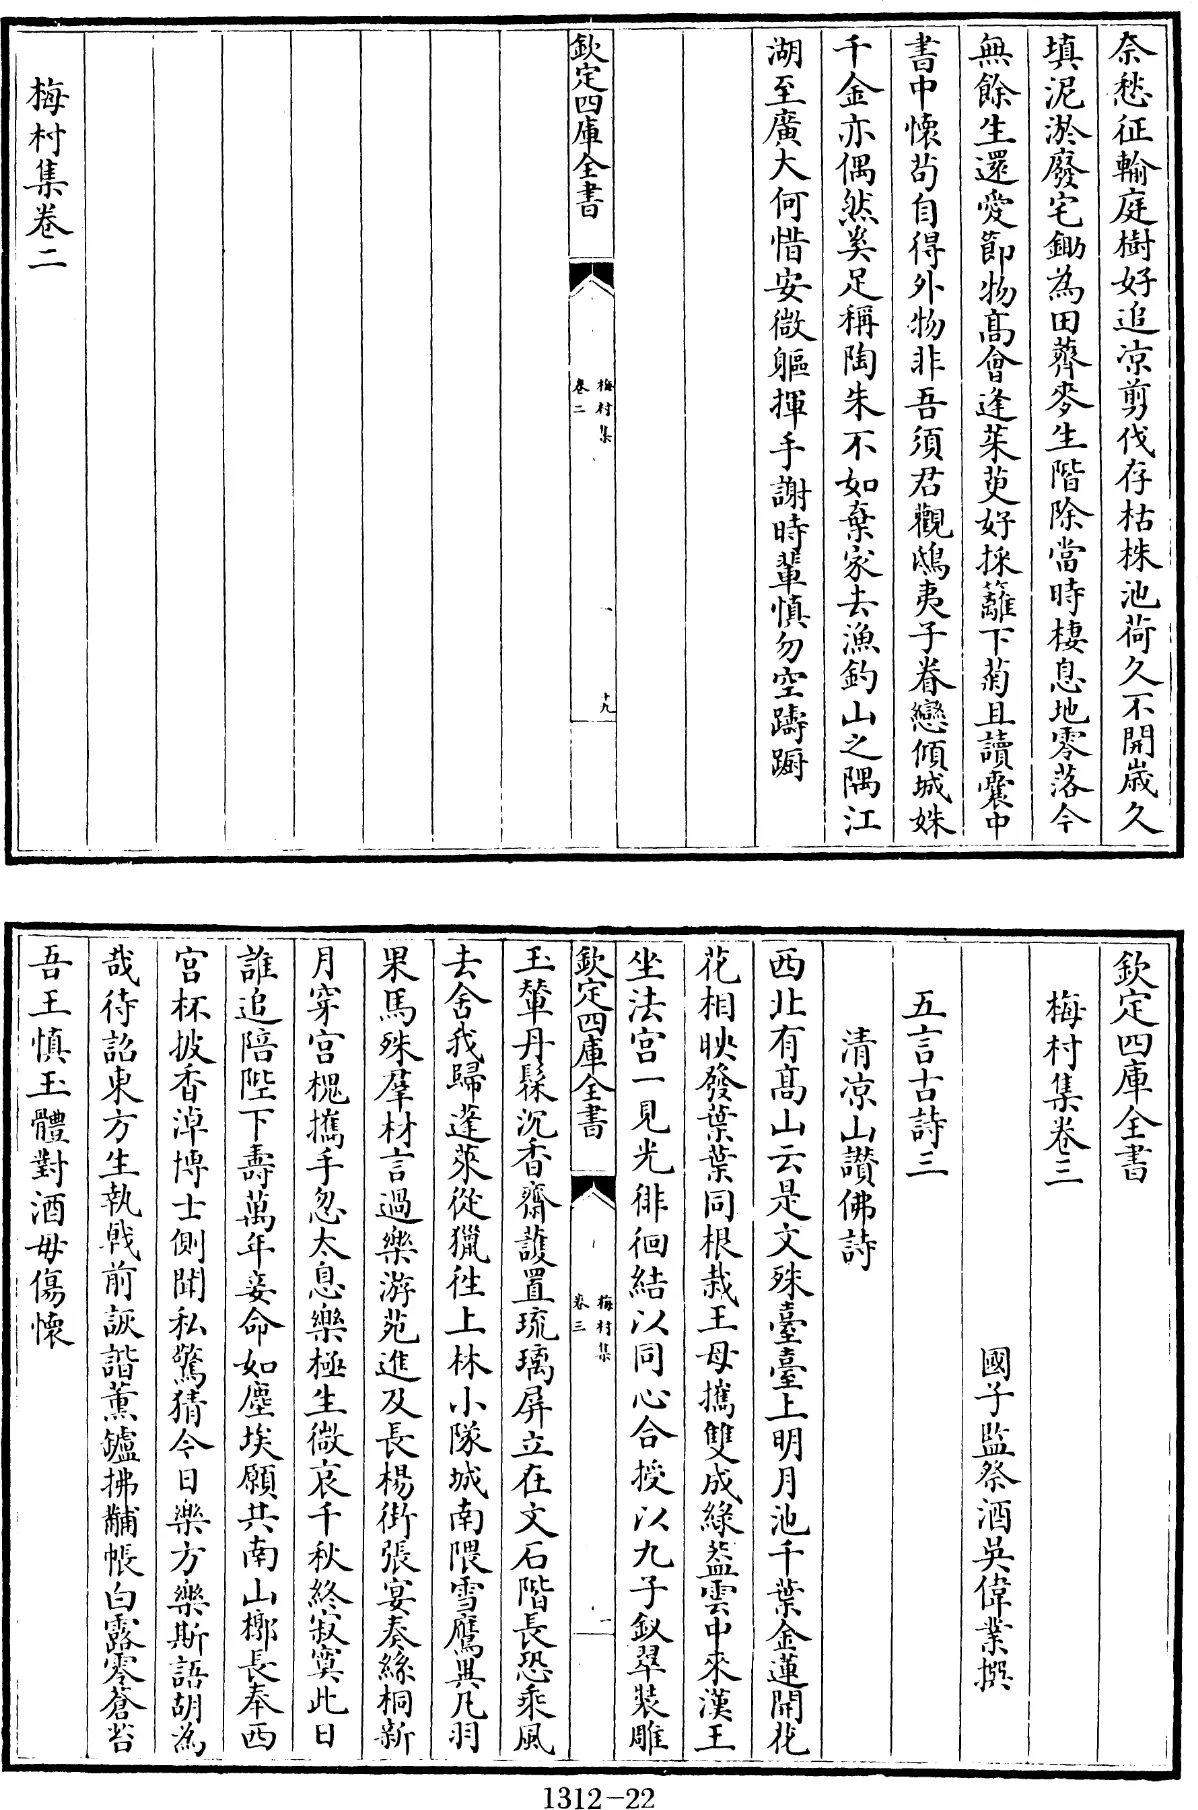 奈愁征輪庭樹好追凉剪伐存枯株池荷久不開歲久
填泥淤廢宅鋤為田薺麥生階除當時棲息地零落今
無餘生還愛節物高會逢茱萸好採籬下菊且讀囊中
書中懷苟自得外物非吾須君觀鴟夷子眷戀傾城姝
千金亦偶然奚足稱陶朱不如棄家去漁釣山之隅江
湖至廣大何惜安微軀揮手謝時輩慎勿空躊躕
欽定四庫全書
梅村集
卷二
十九
梅村集卷二
欽定四庫全書
梅村集卷三
國子監祭酒吳偉業撰
五言古詩三
清凉山讃佛詩
西北有高山云是文殊臺臺上明月池千葉金蓮開花
花相映發葉葉同根栽王母攜雙成綠葢雲中來漢王
坐法宮一見光徘徊結以同心合授以九子釵翠裝雕
欽定四庫全書
梅村集
卷三
一
玉輦丹髹沉香齋䕶置琉璃屏立在文石階長恐乘風
去舍我歸蓬萊從獵往上林小隊城南隈雪鷹異凡羽
果馬殊羣材言過樂游苑進及長楊街張宴奏絲桐新
月穿宮槐攜手忽太息樂極生微哀千秋終寂寞此日
誰追陪陛下壽萬年妾命如塵埃願共南山槨長奉西
宮杯披香淖博士側聞私驚猜今日樂方樂斯語胡為
哉待詔東方生執戟前詼諧薰鑪拂黼帳白露零蒼苔
吾王慎玉體對酒毋傷懷
1312-22